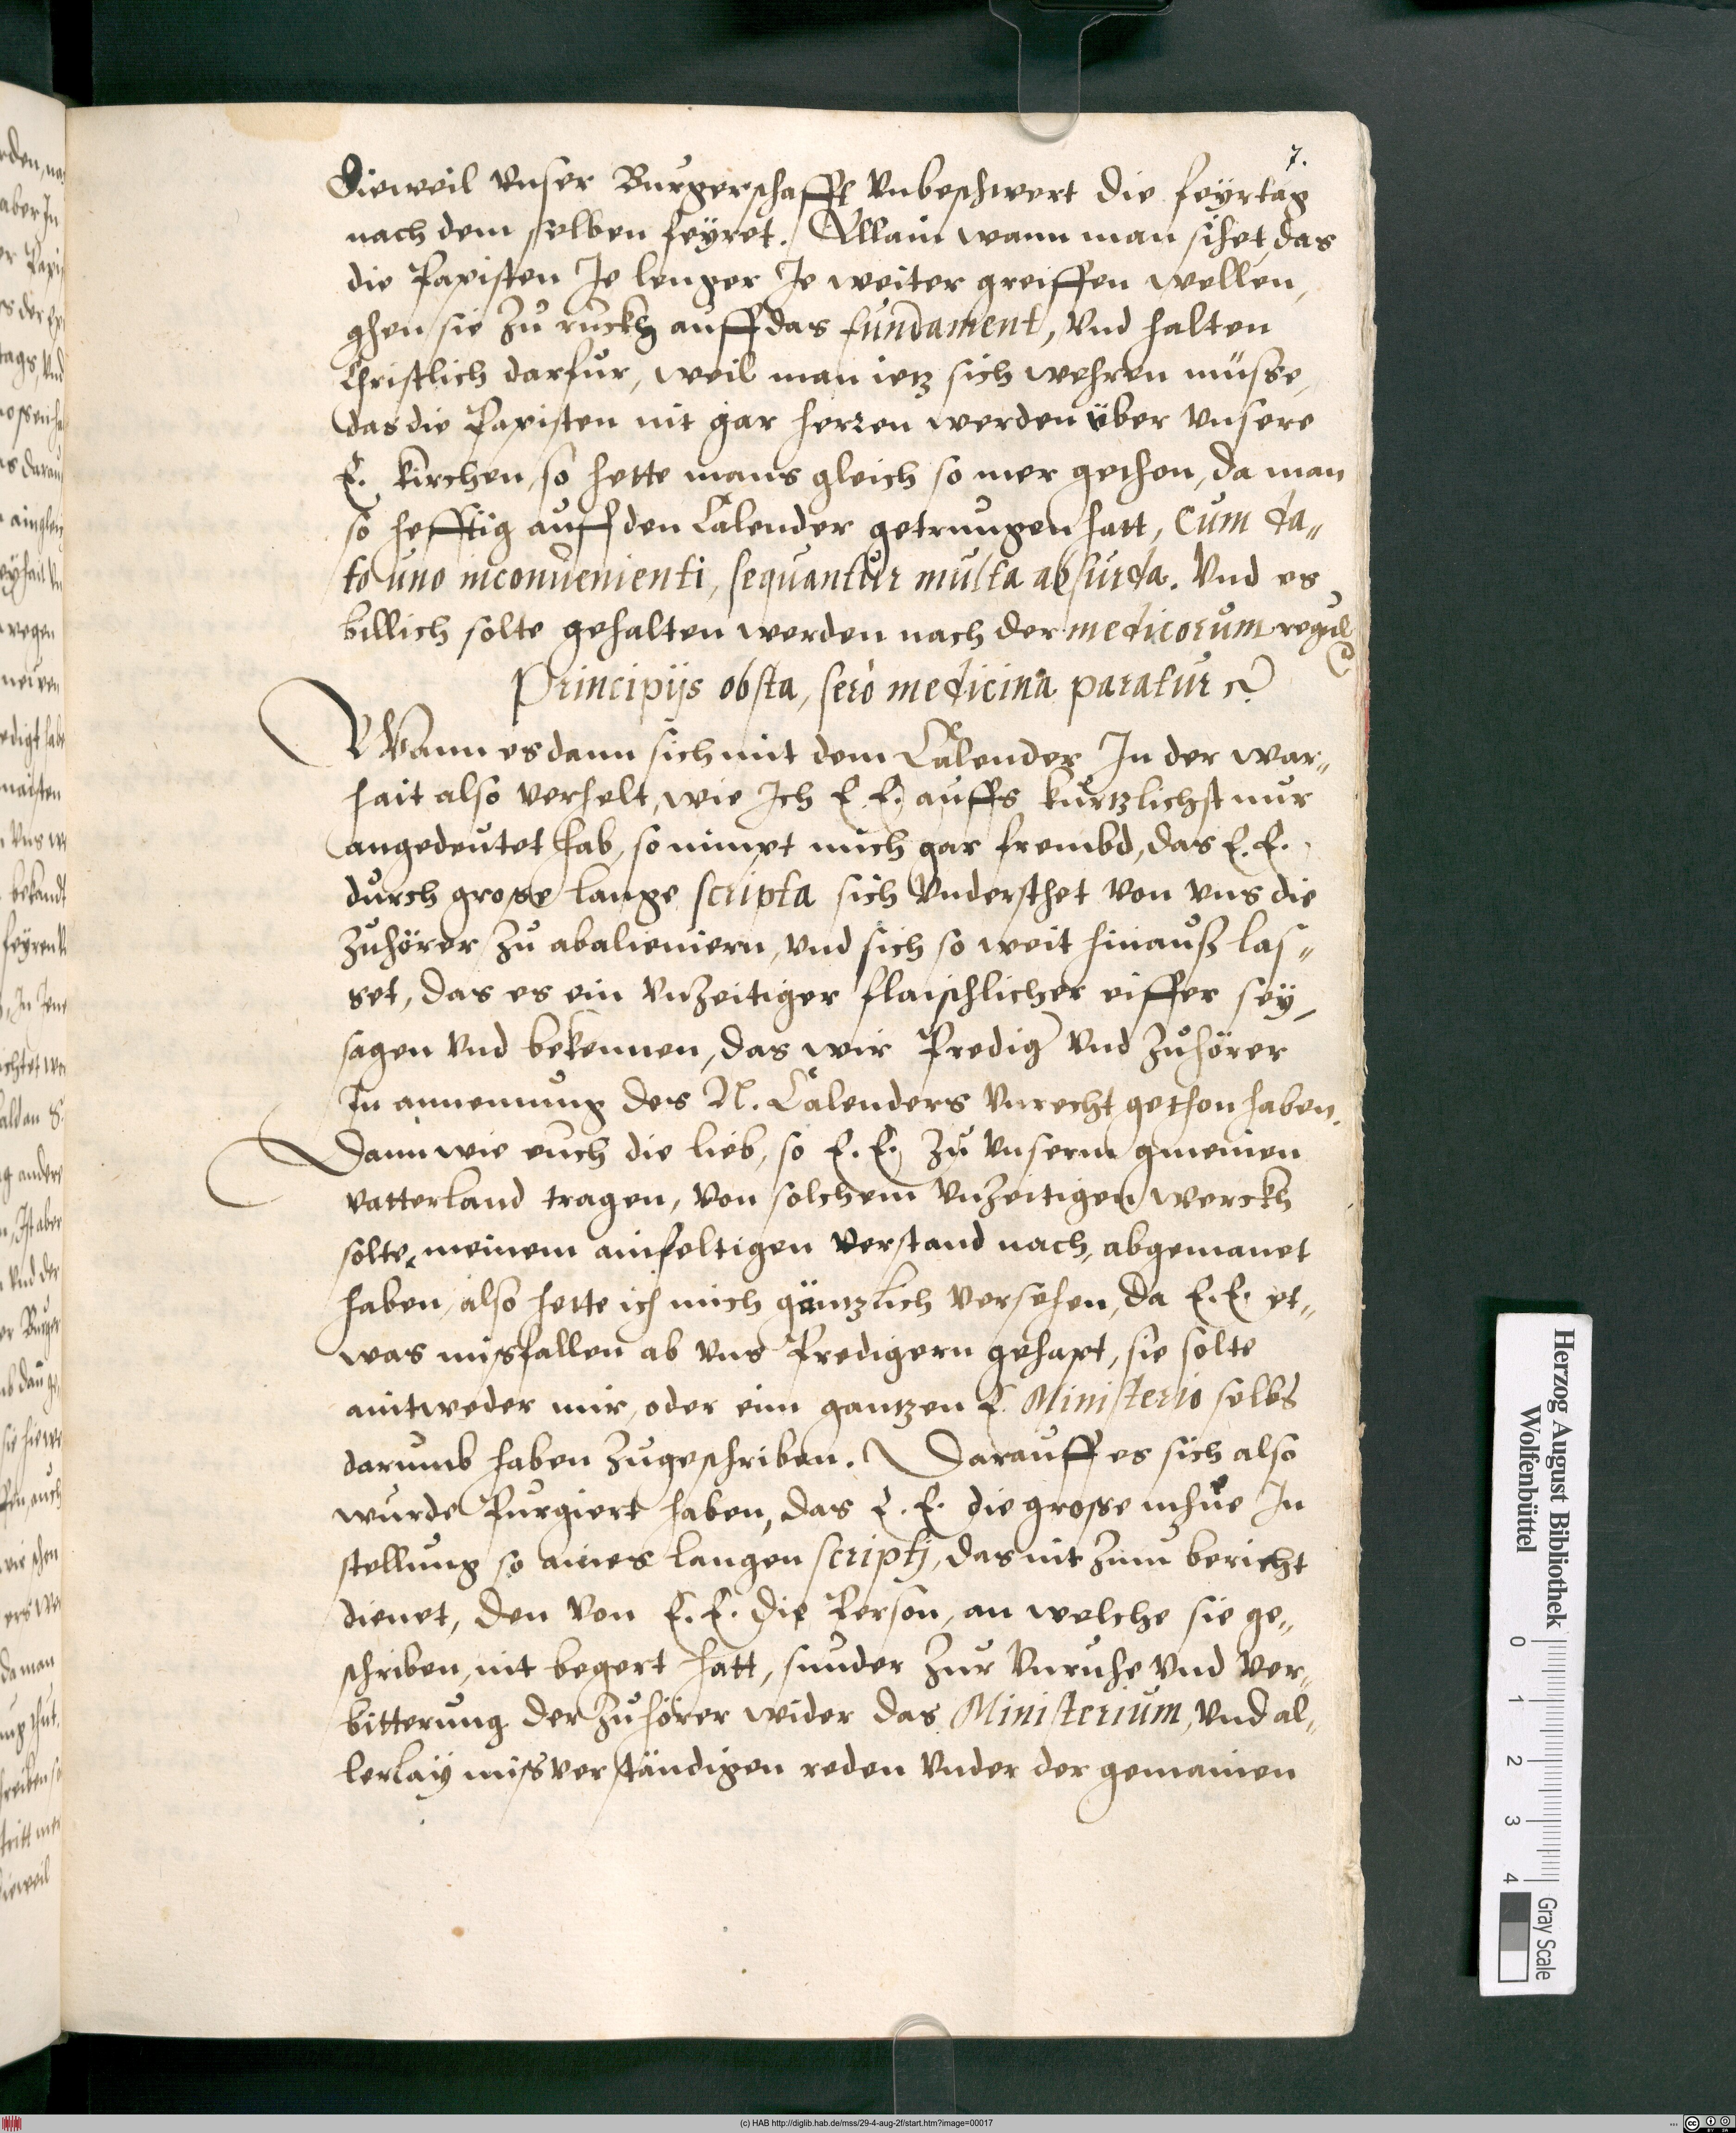 7.
Dieweil vnser Burgerschafft vnbeschwert die feÿrtag
nach dem selben feÿret. Allain wann man sihet, das
die Papisten Je lenger Je weiter greiffen wellen,
ghen sie zu ruckh auff das fundament, vnd halten
Christlich darfur, weil man ietz sich wehren müsse,
das die Papisten nit gar herren werden über vnsere
E. kirchen, so hette mans gleich so mer gethon, da man
so hefftig auff den Calender getrungen hatt, Cum da„
to uno inconuenienti, sequantur multa absurda. Vnd es
billich solte gehalten werden nach der medicorum regul
Principijs obsta, serò medicina paratur
Wann es dann sich mit dem Calender In der war„
hait also verhelt, wie Ich E. E. auffs kurtzlichst nur
angedeutet hab, so nimpt mich gar frembd, das E. E.
durch grose lange scripta sich vndersthet von vns die
zuhörer zu abalieniern, vnd sich so weit hinauß las„
set, das es ein vnzeitiger flaischlicher eiffer seÿ,
sagen vnd bekennen, das wir Predig vnd zuhörer
In annemung des N. Calenders vnrecht gethon haben.
Dann wie euch die lieb, so E. E. zu vnserm gmeinen
vatterland tragen, von solchem vnzeitigen werckh
solte, meinem ainfeltigen verstand nach, abgemanet
haben, also hette ich mich gäntzlich versehen, da E. E. et„
was misfallen ab vns Predigern gehapt, sie solte
aintweder mir, oder eim gantzen E. Ministerio selbs
darumb haben zugeschriben. Darauff es sich also
wurde Purgiert haben, das E. E. die grosse mhüe In
stellung so aines langen scriptj, das nit zum bericht
dienet, den von E. E. die Person, an welche sie ge„
schriben, nit begert hatt, sunder zur vnruhe vnd ver„
bitterung der zuhörer wider das Ministerium, vnd al„
lerlaÿ missverständigen reden vnder der gemainen
Herzog August Bibliothek
Wolfenbüttel
0 1 2 3 4
Gray Scale
(c) HAB http://diglib.hab.de/mss/29-4-aug-2f/start.htm?image=00017